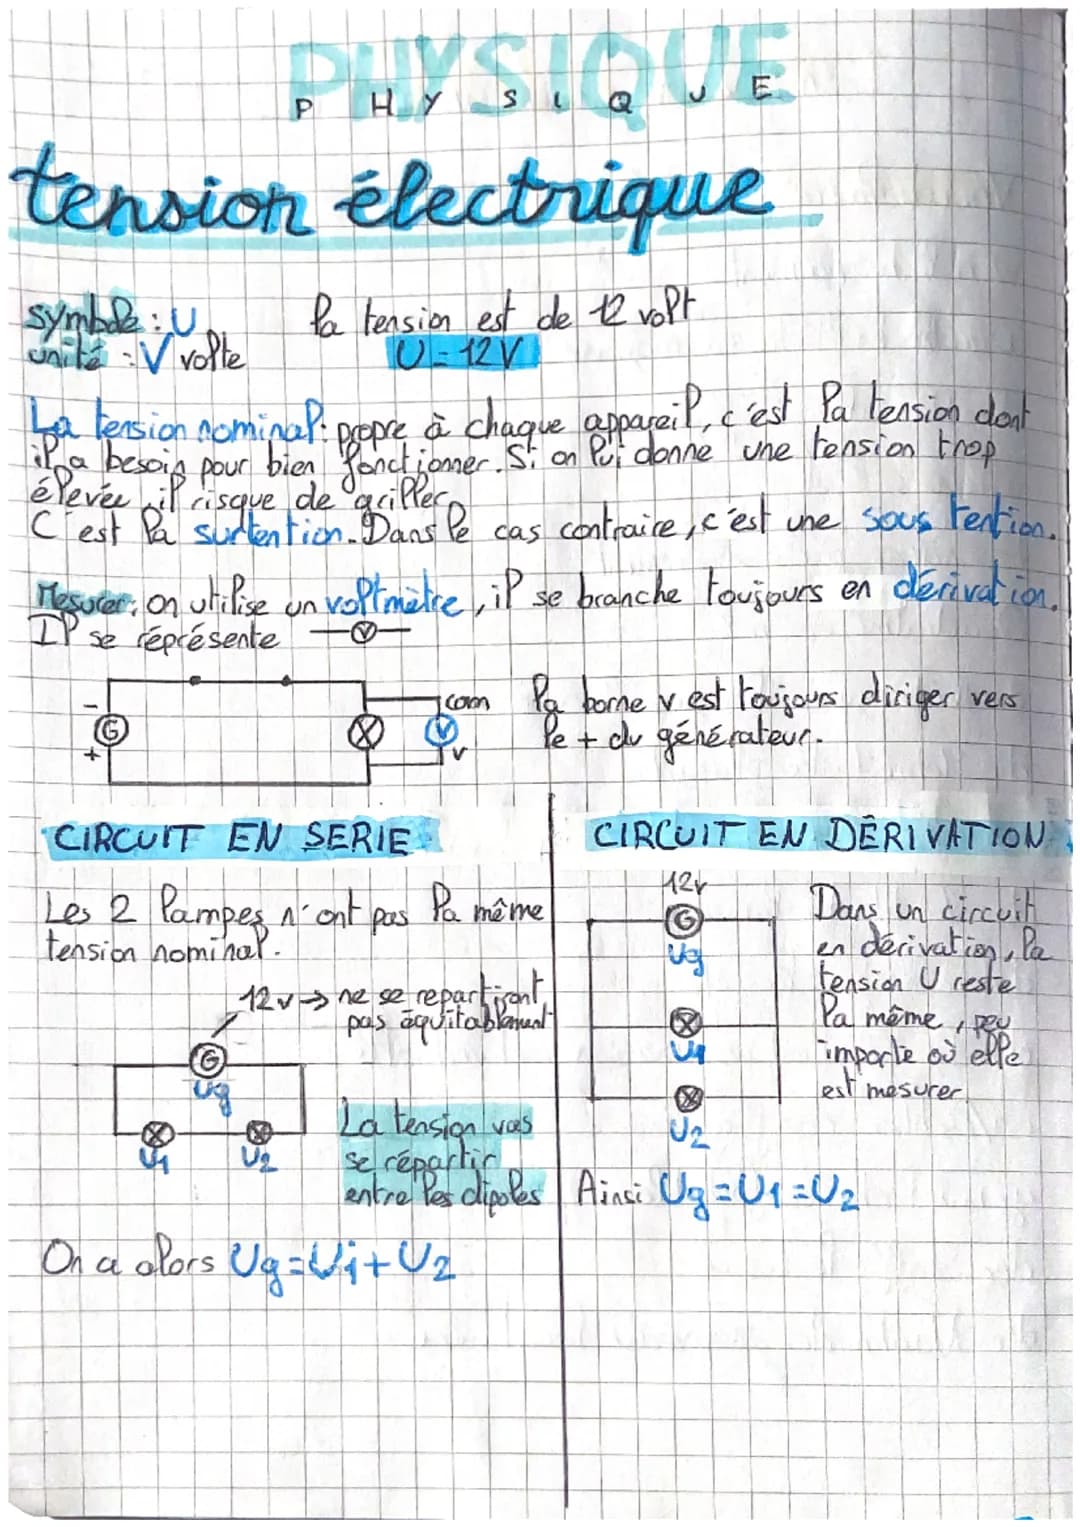 PHYSIQUE
P H Y S I Q U E
tension électrique
symbole : U
unité : V volte
la tension est de 12 volt
U = 12V
La tension nominal : propre à chaque appareil, c'est la tension dont
il a besoin pour bien fonctionner. Si on lui donne une tension trop
élevée, il risque de griller.
C'est la surtention. Dans le cas contraire, c'est une sous tention.
Mesurer : on utilise un voltmètre, il se branche toujours en dérivation.
Il se réprésente V
G - + com V v
la borne v est toujours diriger vers
le + du générateur.
CIRCUIT EN SERIE
Les 2 lampes n'ont pas la même
tension nominal.
12v → ne se repartiront
pas équitablement
G
Ug
U1 U2
La tension vas
se répartir
entre les dipoles
On a alors Ug = U1 + U2
CIRCUIT EN DÉRIVATION
12v
G
Ug
U1
U2
Dans un circuit
en dérivation, la
tension U reste
la même, peu
importe où elle
est mesurer.
Ainsi Ug = U1 = U2